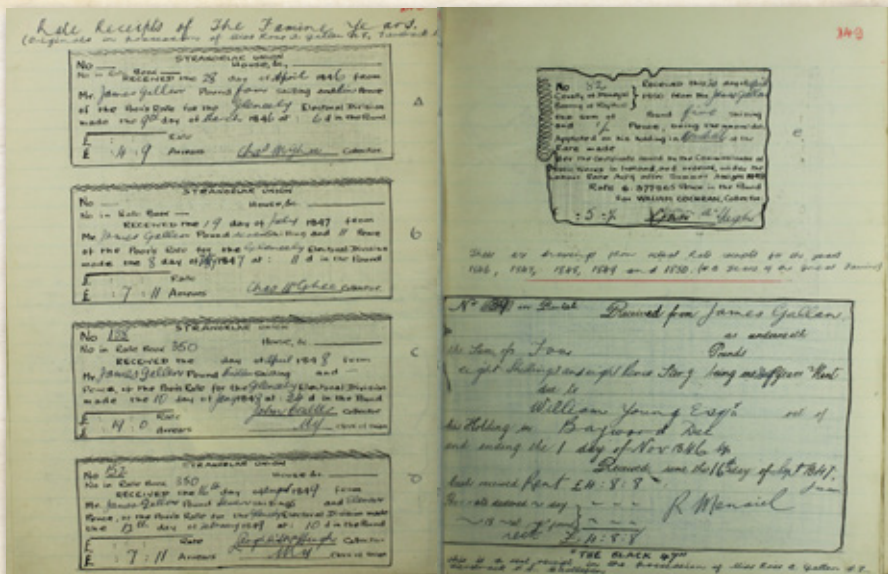 Rate Receipts of The Famine Years.
(Originals in possession of Miss Rose A. Gallen N.T.
STRANORLAR UNION
No House, &c.
No in Rate Book
RECEIVED the 28 day of April 1846 from
Mr. James Gallen Pound four Shilling and nine Pence
of the Poor's Rate for the Glenealy Electoral Division
made the 9th day of March 1846 at: 6d in the Pound
£ Rate
£ :4:9 Arrears Collector
a
STRANORLAR UNION
No House, &c.
No in Rate Book
RECEIVED the 19 day of July 1847 from
Mr. James Gallen Pound seven Shilling and 11 Pence
of the Poor's Rate for the Glenealy Electoral Division
made the 8 day of 1847 at: 11d in the Pound
£ Rate
£ :7:11 Arrears Chas McGhee Collector
b
STRANORLAR UNION
No 155 House, &c.
No in Rate Book 350
RECEIVED the day of April 1848 from
Mr. James Gallen Pound Shilling and
Pence, of the Poor's Rate for the Glenealy Electoral Division
made the 10 day of Jany 1848 at: 2d in the Pound
£ Rate John Collector
£ 14:0 Arrears Clerk of Union
c
STRANORLAR UNION
No 152 House, &c.
No in Rate Book 350
RECEIVED the 16th day of 1849 from
Mr. James Gallen Pound Seven Shillings and Eleven
Pence, of the Poor's Rate for the Electoral Division made
the 13th day of February 1849 at: 10d in the Pound
£ Rate Collector
£ :7:11 Arrears Clerk of Union
D
349
No 52 Received this day of
County of Donegal 1850 from Mr James Gallen
Barony of Raphoe
the sum of Pound five Shilling
and Pence, being the amount
Applotted on his holding in at the
Rate made
under the Certificate issued by the Commissioners of
Public Works in Ireland, and ordered, under the
Labour Rate Act, after Summer Assizes 1849
Rate 6.377865 Pence in the Pound
For WILLIAM COCHRAN, Collector
£ :5:7
e
These are drawings from actual Rate receipts for the years
1846, 1847, 1848, 1849 and 1850. (the years of the Great Famine)
No 39 in Rental Received from James Gallen
as underneath
the Sum of Four Pounds
eight Shillings and eight Pence Ster'g being one half years Rent
due to
William Young Esqr out of
his Holding in Baywood Dee
and ending the 1 day of Nov 1846
Received, same the 16th day of Sept 1847,
Rent £4:8:8
£4:8:8
"THE BLACK 47"
This is a rent receipt in the possession of Miss Rose A. Gallen N.T.